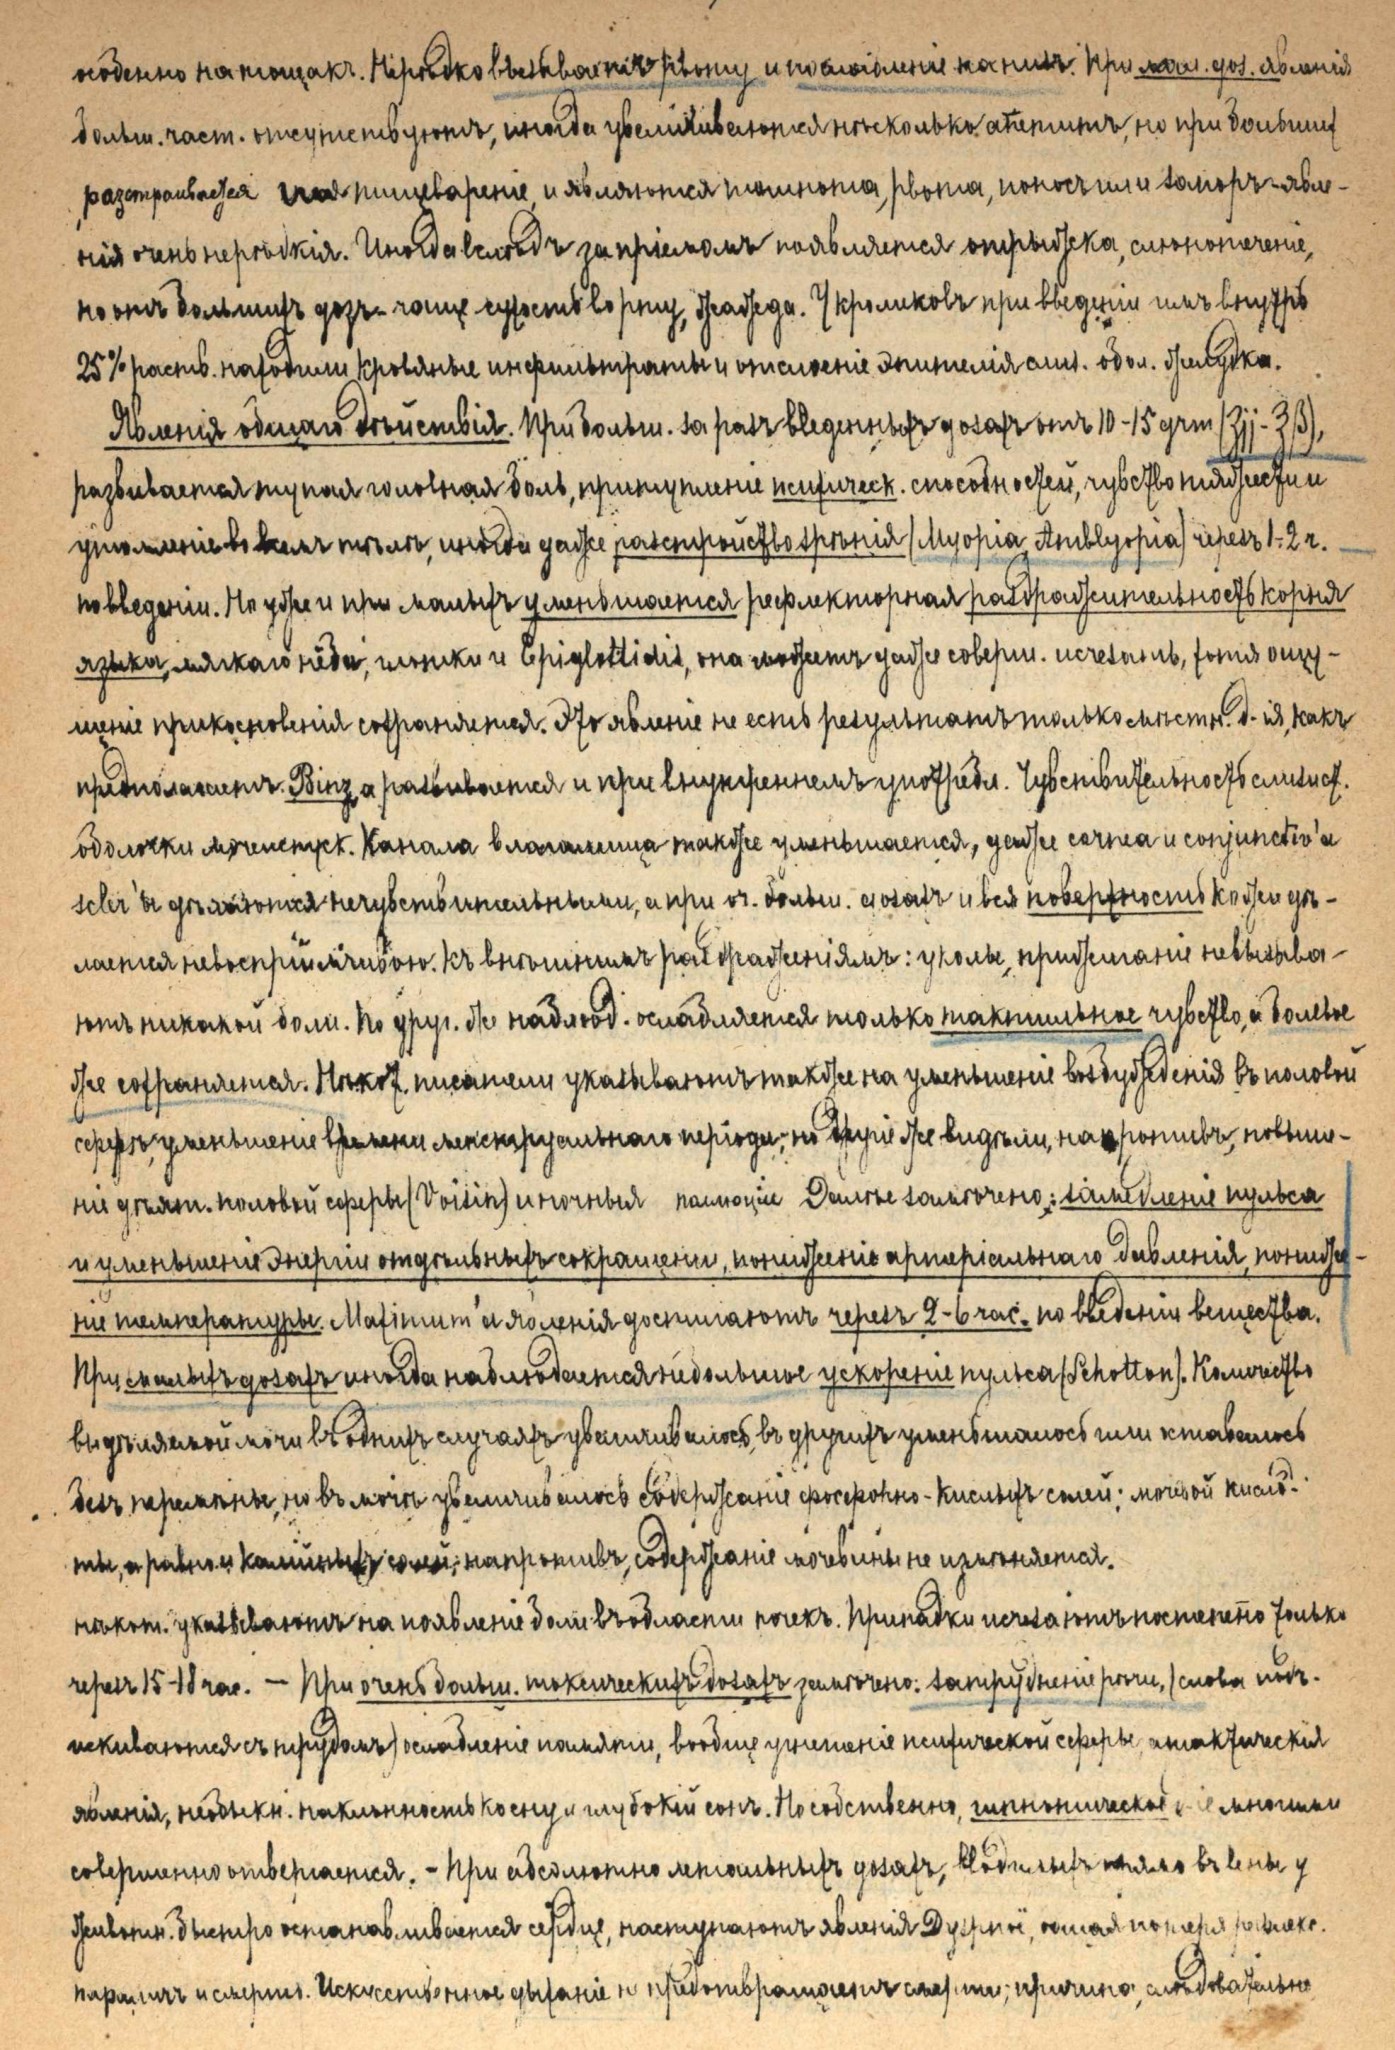 особенно натощакъ. Нерѣдко вызываетъ рвоту и послабленіе на низъ. При мал. доз. явленія
больш. част. отсутствуютъ, иногда увеличивается нѣсколько апетитъ, но при большихъ
разстраивается пищевареніе, и являются тошнота, рвота, поносъ или запоръ - явле-
нія очень нерѣдкія. Иногда вслѣдъ за пріемомъ появляется отрыжка, слюнотеченіе,
но отъ большихъ дозъ - чаще сухость во рту, жажда. У кроликовъ при введеніи имъ внутрь
25% раств. находили кровяные инфильтраты и отслоеніе эпителія слиз. обол. желудка.
Явленія общаго дѣйствія. При больш. за разъ введенныхъ дозахъ отъ 10-15 grm (ʒjj - ℥β),
развивается тупая головная боль, притупленіе психическ. способностей, чувство тяжести и
утомленіе во всемъ тѣлѣ, иногда даже разстройство зрѣнія (Myopia, Amblyopia) черезъ 1-2 ч.
по введеніи. Но уже и при малыхъ уменьшается рефлекторная раздражительность корня
языка, мягкаго нёба, глотки и Epiglottidis, она можетъ даже соверш. исчезать, хотя ощу-
щеніе прикосновенія сохраняется. Это явленіе не есть результатъ только мѣстн. д-ія, какъ
предполагаетъ Binz, а развивается и при внутреннемъ употребл. Чувствительность слизист.
оболочки мочеиспуск. канала влагалища также уменьшается, даже cornea и conjunctiv'а
scler'ы дѣлаются нечувствительными, а при оч. больш. дозахъ и вся поверхность кожи дѣ-
лается невоспріимчивою къ внѣшнимъ раздраженіямъ: уколы, прижиганіе не вызыва-
ютъ никакой боли. По друг. же наблюд. ослабляется только тактильное чувство, а болевое
же сохраняется. Нѣкот. писатели указываютъ также на уменьшеніе возбужденія въ половой
сферѣ, уменьшеніе времени менструальнаго періода; но другіе же видѣли, напротивъ, повыше-
ніе дѣят. половой сферы (Voisin) и ночныя поллюціи. Далѣе замѣчено: замедленіе пульса
и уменьшеніе энергіи отдѣльныхъ сокращеній, пониженіе артеріальнаго давленія, пониже-
ніе температуры. Maximum'а явленія достигаютъ черезъ 2-6 час. по введеніи вещества.
При малыхъ дозахъ иногда наблюдается небольшое ускореніе пульса (Schotten). Количество
выдѣляемой мочи въ однихъ случаяхъ увеличивалось, въ другихъ уменьшалось или оставалось
безъ перемѣны, но въ мочѣ увеличивалось содержаніе фосфорно-кислыхъ солей; мочевой кисло-
ты, а равно и солей; напротивъ, содержаніе мочевины не измѣняется.
нѣкот. указываютъ на появленіе боли въ области почекъ. Припадки исчезаютъ постепенно только
черезъ 15-18 час. — При очень больш. токсическихъ дозахъ замѣчено: затрудненіе рѣчи, (слова подъ-
искиваются съ трудомъ) ослабленіе памяти, вообще угнетеніе психической сферы, атактическія
явленія, необыкн. наклонность ко сну и глубокій сонъ. Но собственно, гипнотическое многими
совершенно отвергается. - При абсолютно летальныхъ дозахъ, вводимыхъ прямо въ вены у
животн. быстро останавливается сердце, наступаютъ явленія Dyspnoё, общая потеря рефлекс.
параличъ и смерть. Искусственное дыханіе не предотвращаетъ смерти; причина, слѣдовательно